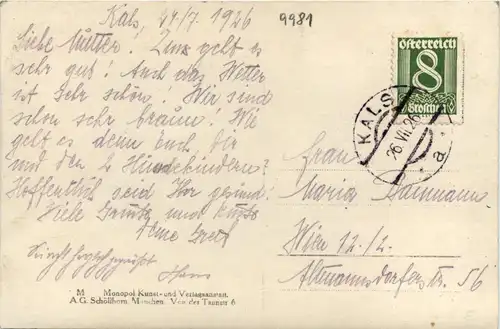 Kals, 24/7 1926
9981
Liebe Mutter! Uns geht es
sehr gut! Auch das Wetter
ist sehr schön! Wir sind
schon sehr braun! Wie
geht es denn Euch, Dir
und den 2 Hundekindern?
Hoffentlich seid Ihr gesund!
Viele Grüße und Küsse
Deine Gretl
Hans
österreich
8
Groschen
KALS
26.VII.26
a
Frau
Maria
Wien 12./2.
Altmannsdorferstr. 56
M Monopol Kunst- und Verlagsanstalt
A. G. Schöllhorn, München, Von der Tannstr 6